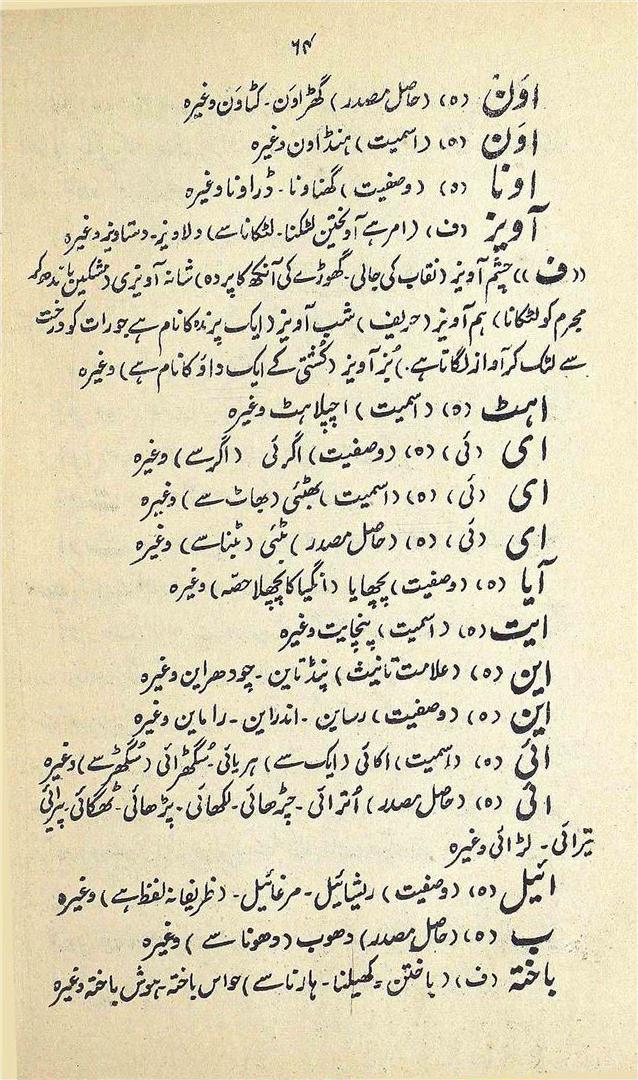 ۶۴
اوَن (ہ) (حاصل مصدر) گھڑاوَن۔ کٹاوَن وغیرہ
اوَن (ہ) (اسمیت) ہنڈاون وغیرہ
اونا (ہ) (وصفیت) گھناونا۔ ڈراونا وغیرہ
آویز (ف) (امر ہے آویختن لٹکنا۔ لٹکانا سے) دلاویز۔ دستاویز وغیرہ
((ف)) چشم آویز (نقاب کی جالی۔ گھوڑے کی آنکھ کا پردہ) شانہ آویزی (مشکیں باندھ کر
مجرم کو لٹکانا) ہم آویز (حریف) شب آویز (ایک پرندہ کا نام ہے جو رات کو درخت
سے لٹک کر آواز لگاتا ہے۔) بُز آویز (کُشتی کے ایک داؤ کا نام ہے) وغیرہ
اہٹ (ہ) (اسمیت) اچپلاہٹ وغیرہ
ای (ئی) (ہ) (وصفیت) اگرئی (اگر سے) وغیرہ
ای (ئی) (ہ) (اسمیت) بھٹئی (بھاٹ سے) وغیرہ
ای (ئی) (ہ) (حاصل مصدر) بٹئی (بٹنا سے) وغیرہ
آیا (ہ) (وصفیت) پچھایا (انگیا کا پچھلا حصّہ) وغیرہ
ایت (ہ) (اسمیت) پنچایت وغیرہ
این (ہ) (علامت تانیث) پنڈتاین۔ چودھراین وغیرہ
این (ہ) (وصفیت) رساین۔ اندراین۔ راماین وغیرہ
ائی (ہ) (اسمیت) اکائی (ایک سے) ہریائی۔ سُگھڑائی (سُگھڑ سے) وغیرہ
ائی (ہ) (حاصل مصدر) اُترائی۔ چڑھائی۔ لکھائی۔ پڑھائی۔ ٹھگائی۔ پیرائی
تیرائی۔ لڑائی وغیرہ
ائیل (ہ) (وصفیت) ریشائیل۔ مرغائیل۔ (ظریفانہ لفظ ہے) وغیرہ
ب (ہ) (حاصل مصدر) دھوب (دھونا سے) وغیرہ
باختہ (ف) (باختن۔ کھیلنا۔ ہارنا سے) حواس باختہ۔ ہوش باختہ وغیرہ